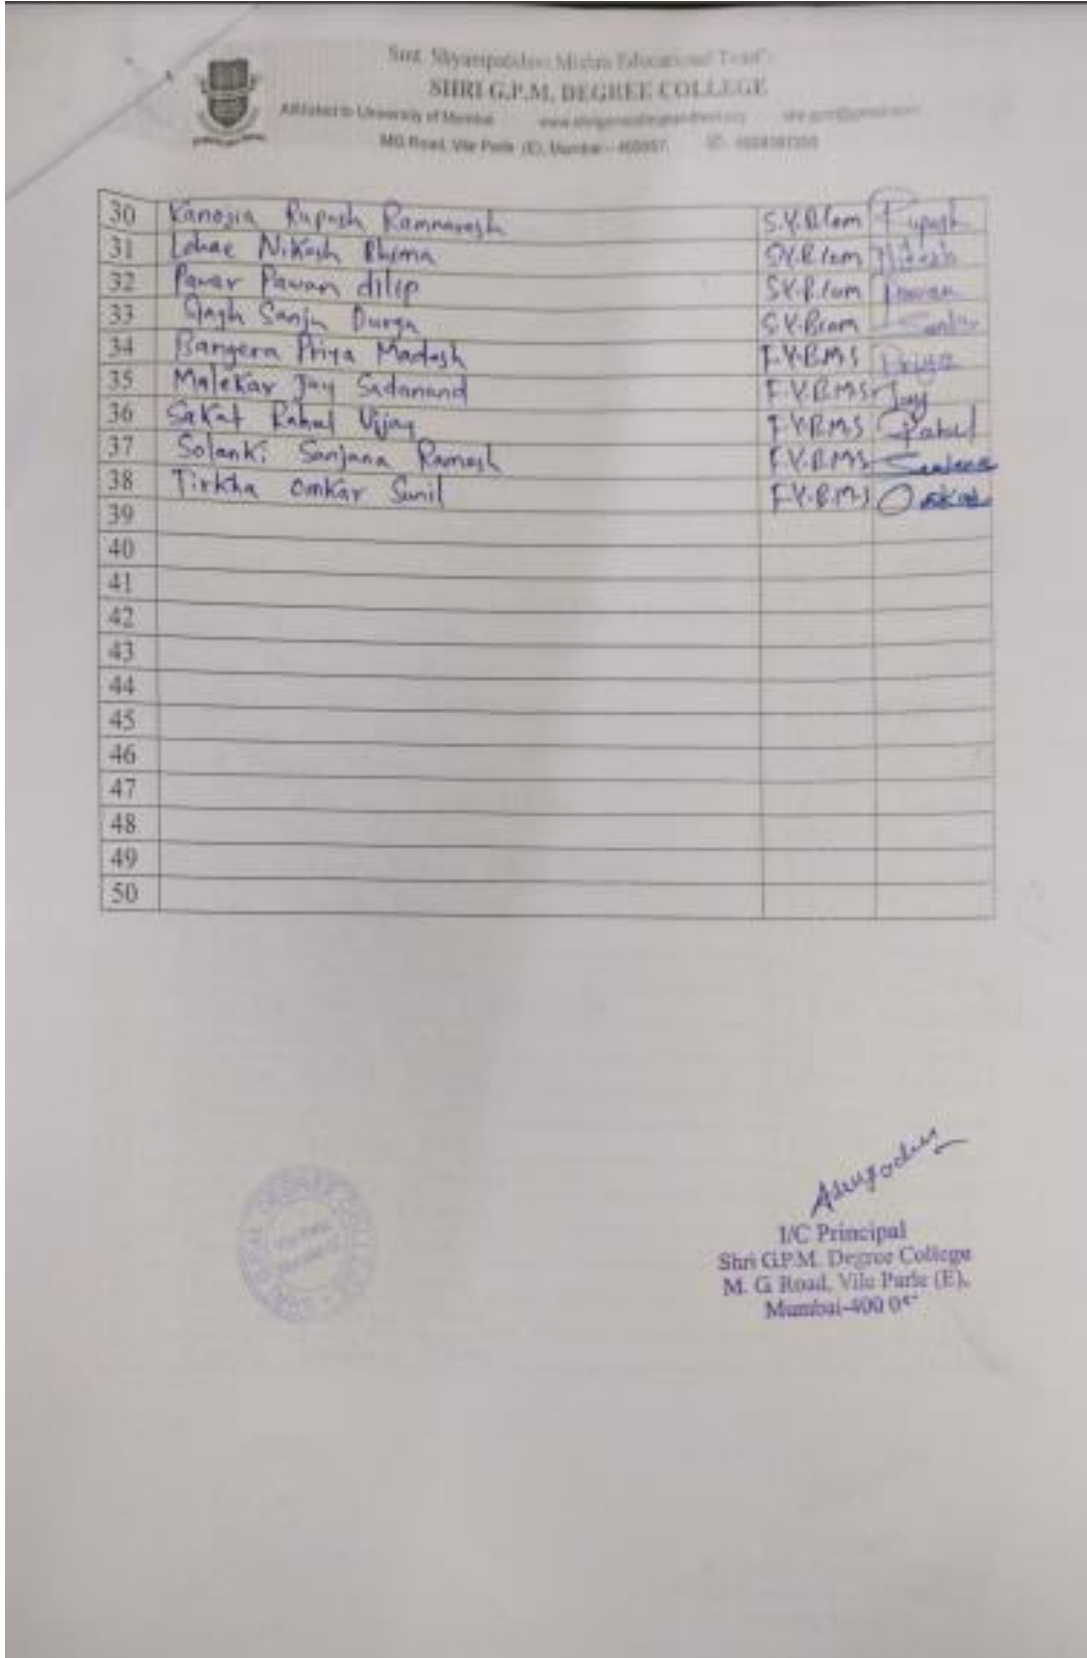 Smt. Shyampatidevi Mishra Educational Trust's
SHRI G.P.M. DEGREE COLLEGE
Affiliated to University of Mumbai
MG Road, Vile Parle (E), Mumbai - 400057.
30 Kanojia Rupesh Ramnaresh S.Y.B.Com Rupesh
31 Nikesh Bhima S.Y.B.Com Nikesh
32 Pawar Pawan dilip S.Y.B.Com Pawan
33 Singh Sanju Durga S.Y.Bcom Sanju
34 Bangera Priya Madesh F.Y.B.M.S Priya
35 Malekar Jay Sadanand F.Y.B.M.S Jay
36 Sakat Rahul Vijay F.Y.B.M.S Rahul
37 Solanki Sanjana Ramesh F.Y.B.M.S Sanjana
38 Tirkha Omkar Sunil F.Y.B.M.S Omkar
39
40
41
42
43
44
45
46
47
48
49
50
I/C Principal
Shri G.P.M. Degree College
M. G. Road, Vile Parle (E),
Mumbai-400 05